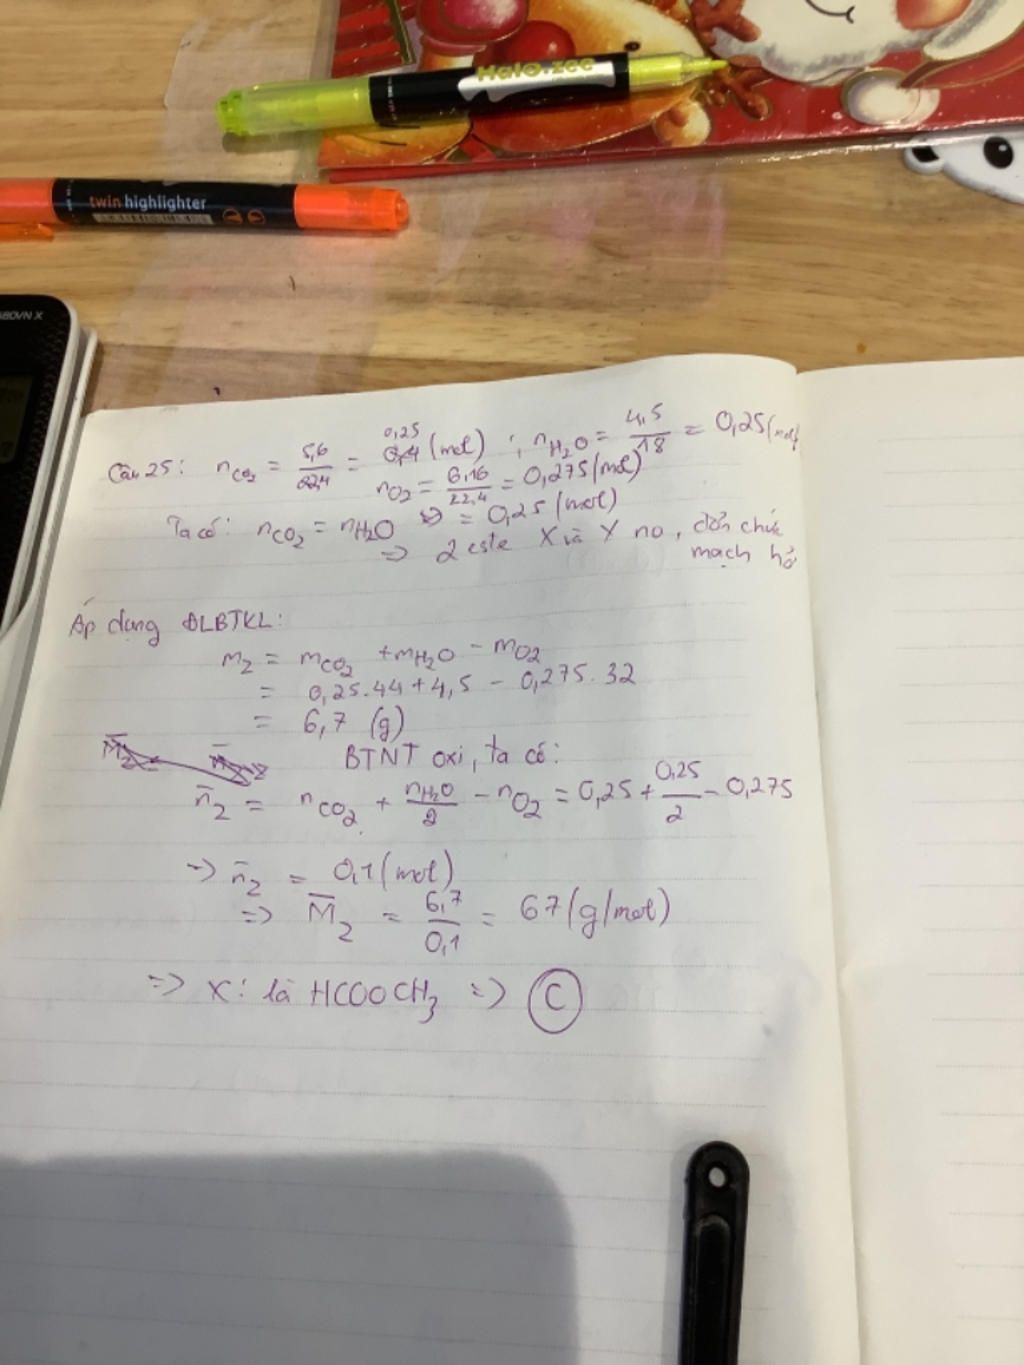 Halo.zee
twin highlighter
580VN X
Câu 25: nCO2 = 5,6/22,4 = 0,25 (mol) ; nH2O = 4,5/18 = 0,25 (mol)
nO2 = 6,16/22,4 = 0,275 (mol)
Ta có: nCO2 = nH2O = 0,25 (mol)
=> 2 este X và Y no, đơn chức
mạch hở
Áp dụng ĐLBTKL:
m2 = mCO2 + mH2O - mO2
= 0,25.44 + 4,5 - 0,275.32
= 6,7 (g)
BTNT oxi, ta có:
n̄2 = nCO2 + nH2O/2 - nO2 = 0,25 + 0,25/2 - 0,275
-> n̄2 = 0,1 (mol)
=> M̄2 = 6,7/0,1 = 67 (g/mol)
=> X: là HCOOCH3 => C